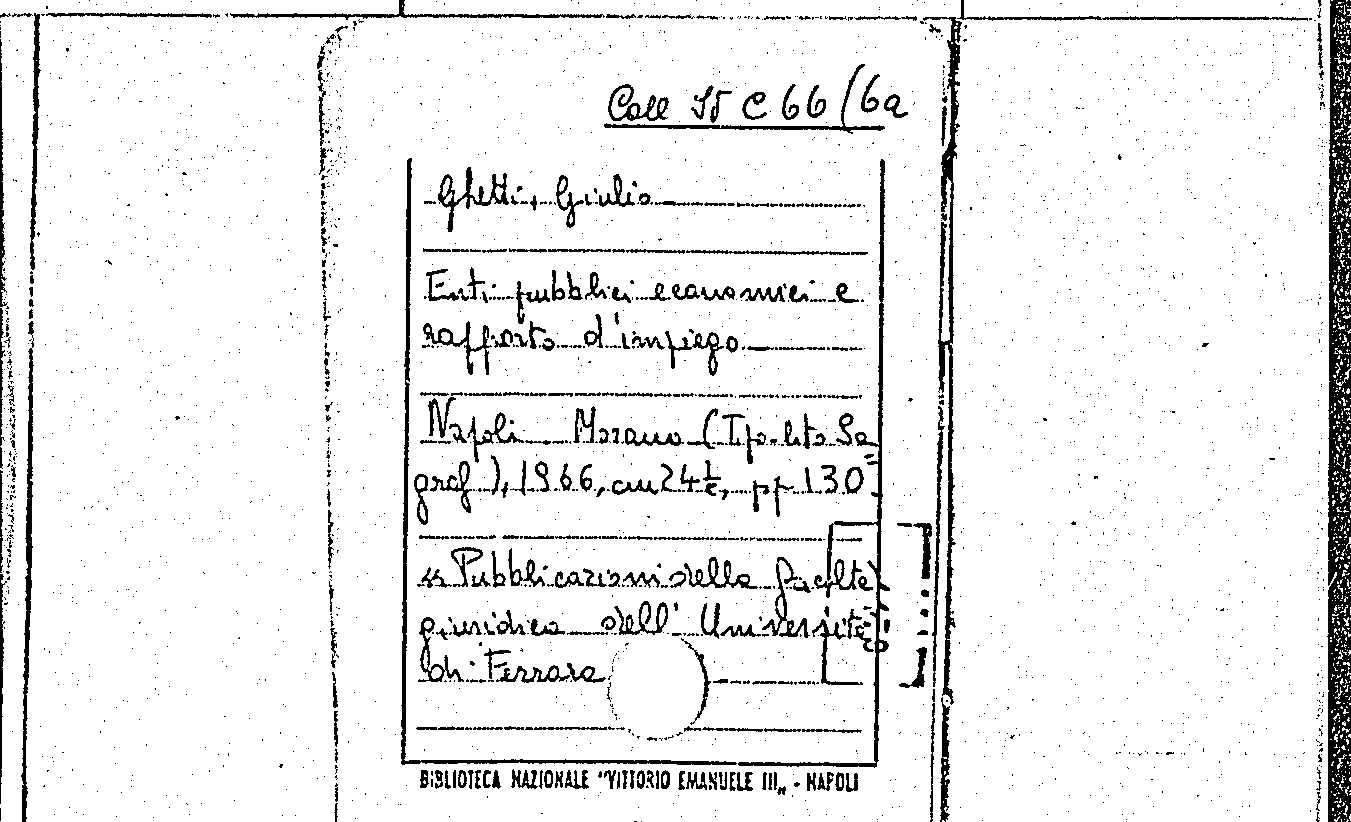 Coll It C 66/6a
Ghetti, Giulio
Enti pubblici economici e
rapporto d'impiego
Napoli Morano (Tipo-lito Sa
graf), 1966, cm 24 ½, pp 130
« Pubblicazioni della facoltà
giuridica dell' Università
di Ferrara
BIBLIOTECA NAZIONALE "VITTORIO EMANUELE III„ - NAPOLI